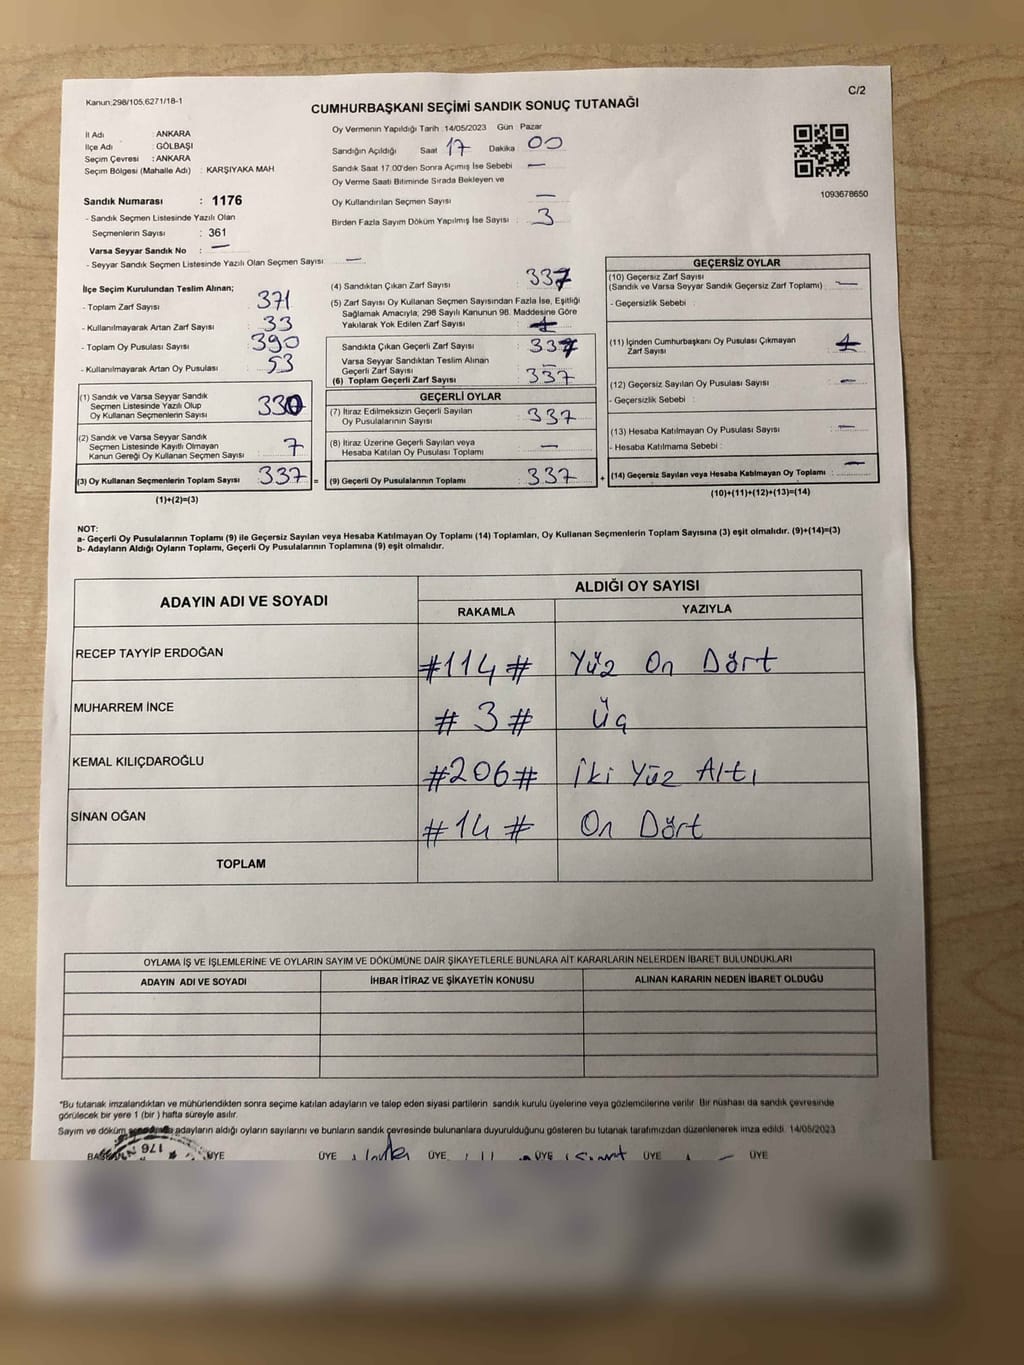 Kanun:298/105,6271/18-1
C/2
CUMHURBAŞKANI SEÇİMİ SANDIK SONUÇ TUTANAĞI
İl Adı : ANKARA
İlçe Adı : GÖLBAŞI
Seçim Çevresi : ANKARA
Seçim Bölgesi (Mahalle Adı) : KARŞIYAKA MAH
Oy Vermenin Yapıldığı Tarih :14/05/2023 Gün Pazar
Sandığın Açıldığı Saat 17 Dakika 00
Sandık Saat 17.00'den Sonra Açımış İse Sebebi —
Oy Verme Saati Bitiminde Sırada Bekleyen ve
Oy Kullandırılan Seçmen Sayısı —
Birden Fazla Sayım Döküm Yapılmış İse Sayısı : 3
1093678650
Sandık Numarası : 1176
- Sandık Seçmen Listesinde Yazılı Olan
Seçmenlerin Sayısı : 361
Varsa Seyyar Sandık No : —
- Seyyar Sandık Seçmen Listesinde Yazılı Olan Seçmen Sayısı —
İlçe Seçim Kurulundan Teslim Alınan;
- Toplam Zarf Sayısı : 371
- Kullanılmayarak Artan Zarf Sayısı : 33
- Toplam Oy Pusulası Sayısı : 390
- Kullanılmayarak Artan Oy Pusulası : 53
(1) Sandık ve Varsa Seyyar Sandık
Seçmen Listesinde Yazılı Olup
Oy Kullanan Seçmenlerin Sayısı : 330
(2) Sandık ve Varsa Seyyar Sandık
Seçmen Listesinde Kayıtlı Olmayan
Kanun Gereği Oy Kullanan Seçmen Sayısı : 7
(3) Oy Kullanan Seçmenlerin Toplam Sayısı : 337 =
(1)+(2)=(3)
(4) Sandıktan Çıkan Zarf Sayısı : 337
(5) Zarf Sayısı Oy Kullanan Seçmen Sayısından Fazla İse, Eşitliği
Sağlamak Amacıyla; 298 Sayılı Kanunun 98. Maddesine Göre
Yakılarak Yok Edilen Zarf Sayısı :
Sandıkta Çıkan Geçerli Zarf Sayısı : 337
Varsa Seyyar Sandıktan Teslim Alınan
Geçerli Zarf Sayısı : —
(6) Toplam Geçerli Zarf Sayısı : 337
GEÇERLİ OYLAR
(7) İtiraz Edilmeksizin Geçerli Sayılan
Oy Pusulalarının Sayısı : 337
(8) İtiraz Üzerine Geçerli Sayılan veya
Hesaba Katılan Oy Pusulası Toplamı : —
(9) Geçerli Oy Pusulalarının Toplamı : 337 +
GEÇERSİZ OYLAR
(10) Geçersiz Zarf Sayısı
(Sandık ve Varsa Seyyar Sandık Geçersiz Zarf Toplamı) : —
- Geçersizlik Sebebi :
(11) İçinden Cumhurbaşkanı Oy Pusulası Çıkmayan
Zarf Sayısı :
(12) Geçersiz Sayılan Oy Pusulası Sayısı : —
- Geçersizlik Sebebi :
(13) Hesaba Katılmayan Oy Pusulası Sayısı : —
- Hesaba Katılmama Sebebi :
(14) Geçersiz Sayılan veya Hesaba Katılmayan Oy Toplamı : —
(10)+(11)+(12)+(13)=(14)
NOT:
a- Geçerli Oy Pusulalarının Toplamı (9) ile Geçersiz Sayılan veya Hesaba Katılmayan Oy Toplamı (14) Toplamları, Oy Kullanan Seçmenlerin Toplam Sayısına (3) eşit olmalıdır. (9)+(14)=(3)
b- Adayların Aldığı Oyların Toplamı, Geçerli Oy Pusulalarının Toplamına (9) eşit olmalıdır.
ADAYIN ADI VE SOYADI
ALDIĞI OY SAYISI
RAKAMLA YAZIYLA
RECEP TAYYİP ERDOĞAN #114# Yüz On Dört
MUHARREM İNCE #3# Üç
KEMAL KILIÇDAROĞLU #206# İki Yüz Altı
SİNAN OĞAN #14# On Dört
TOPLAM
OYLAMA İŞ VE İŞLEMLERİNE VE OYLARIN SAYIM VE DÖKÜMÜNE DAİR ŞİKAYETLERLE BUNLARA AİT KARARLARIN NELERDEN İBARET BULUNDUKLARI
ADAYIN ADI VE SOYADI İHBAR İTİRAZ VE ŞİKAYETİN KONUSU ALINAN KARARIN NEDEN İBARET OLDUĞU
"Bu tutanak imzalandıktan ve mühürlendikten sonra seçime katılan adayların ve talep eden siyasi partilerin sandık kurulu üyelerine veya gözlemcilerine verilir. Bir nüshası da sandık çevresinde
görülecek bir yere 1 (bir ) hafta süreyle asılır.
Sayım ve döküm adayların aldığı oyların sayılarını ve bunların sandık çevresinde bulunanlara duyurulduğunu gösteren bu tutanak tarafımızdan düzenlenerek imza edildi. 14/05/2023
ÜYE ÜYE ÜYE ÜYE ÜYE ÜYE